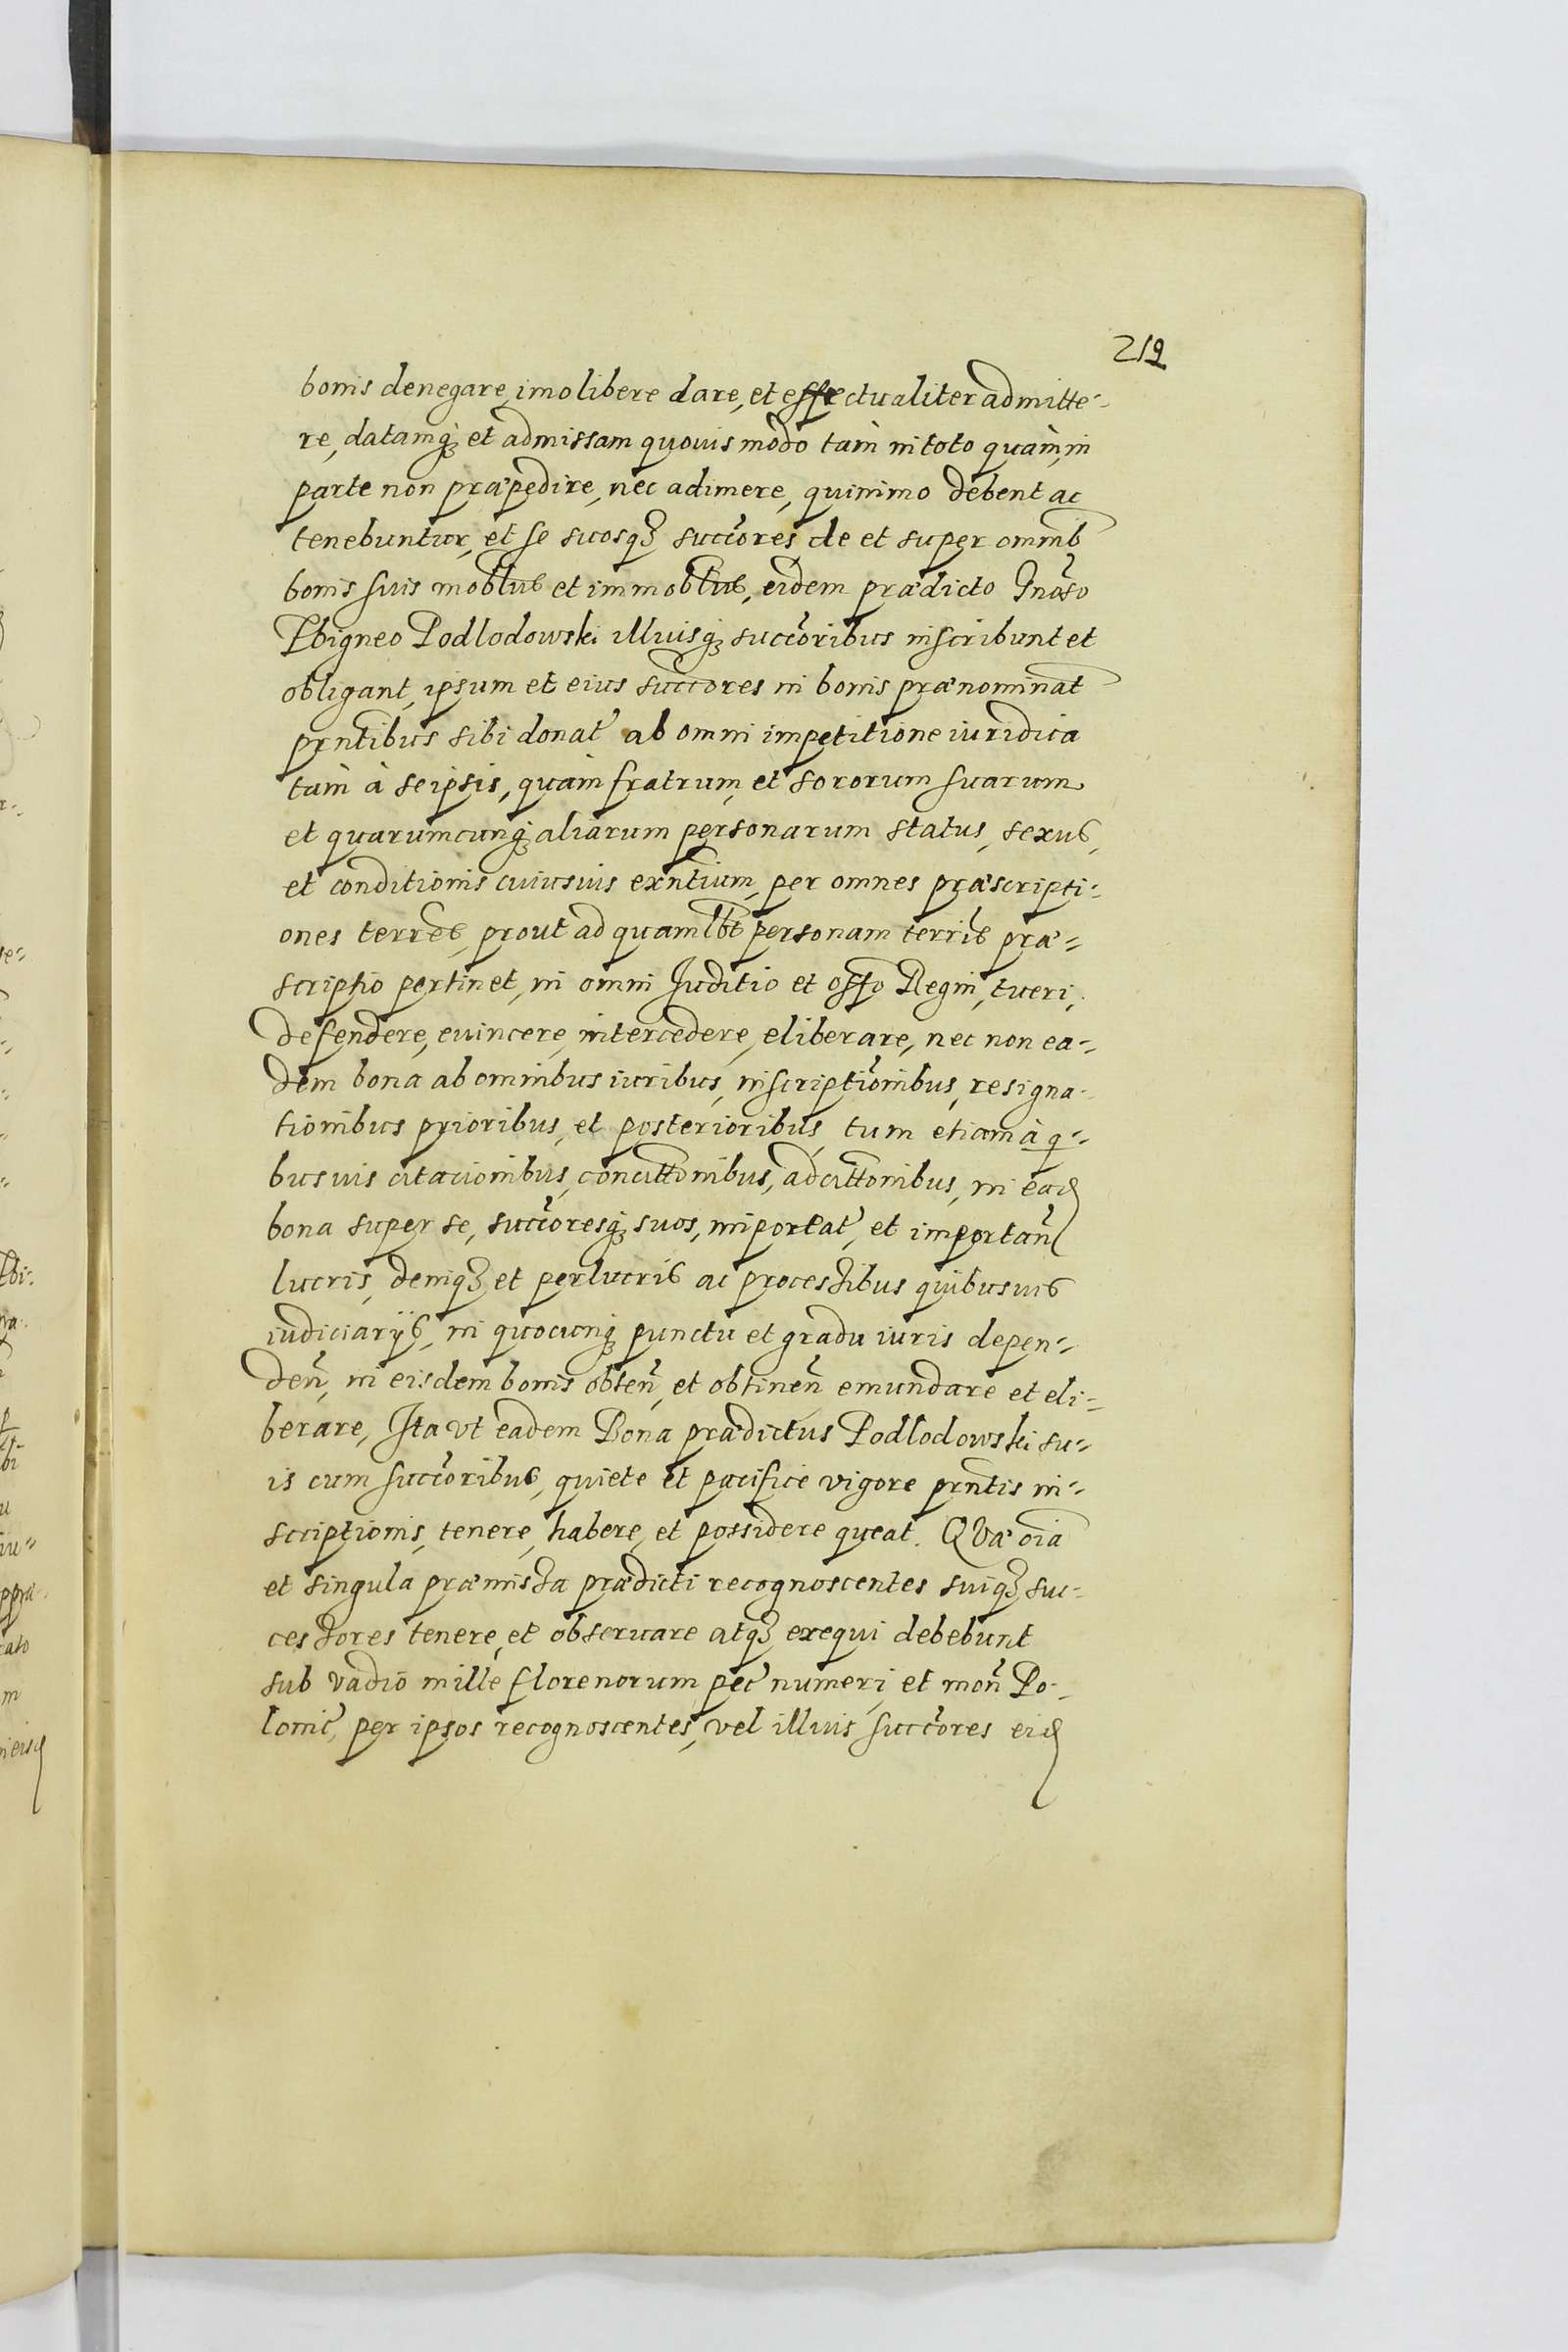 219
bonis denegare, imo libere dare, et effectualiter admitte-
re, datamq; et admissam quouis modo tam in toto quam, in
parte non præpedire, nec adimere, quinimo debent ac
tenebuntur, et se suosq; succores de et super omnib
bonis suis moblibus et immoblibus, eidem prædicto Gnoso
Zbigneo Podlodowski illiusq; succoribus inscribunt et
obligant, ipsum et eius succores in bonis prænominat
prntibus sibi donat ab omni impetitione iuridica
tam à seipsis, quam fratrum, et sororum suarum
et quarumcunq; aliarum personarum status, sexus,
et conditionis cuiusuis exntium, per omnes præscripti-
ones terres, prout ad quamlbt personam terris præ-
scriptio pertinet, in omni Juditio et offo Regni, tueri,
defendere, euincere, intercedere, eliberare, nec non ea-
dem bona ab omnibus iuribus, inscriptionibus, resigna-
tionibus prioribus, et posterioribus, tum etiam à q-
busuis citacionibus, concittonibus, adcittonibus, in ead
bona super se, succoresq; suos, importat, et importan
lucris, deniq; et perlucris ac processibus quibusuis
iudiciarijs, in quocunq; punctu et gradu iuris depen-
den, in eisdem bonis obten, et obtinen emundare et eli-
berare, Ita vt eadem Bona prædictus Podlodowski su-
is cum succoribus, quiete et pacifice vigore prntis in-
scriptionis, tenere, habere, et possidere queat. QVæ oia
et singula præmissa prædicti recognoscentes suiq; suc-
cessores tenere, et obseruare atq; exequi debebunt
sub vadio mille florenorum pec numeri, et mon Po-
lonic, per ipsos recognoscentes, vel illius succores eid